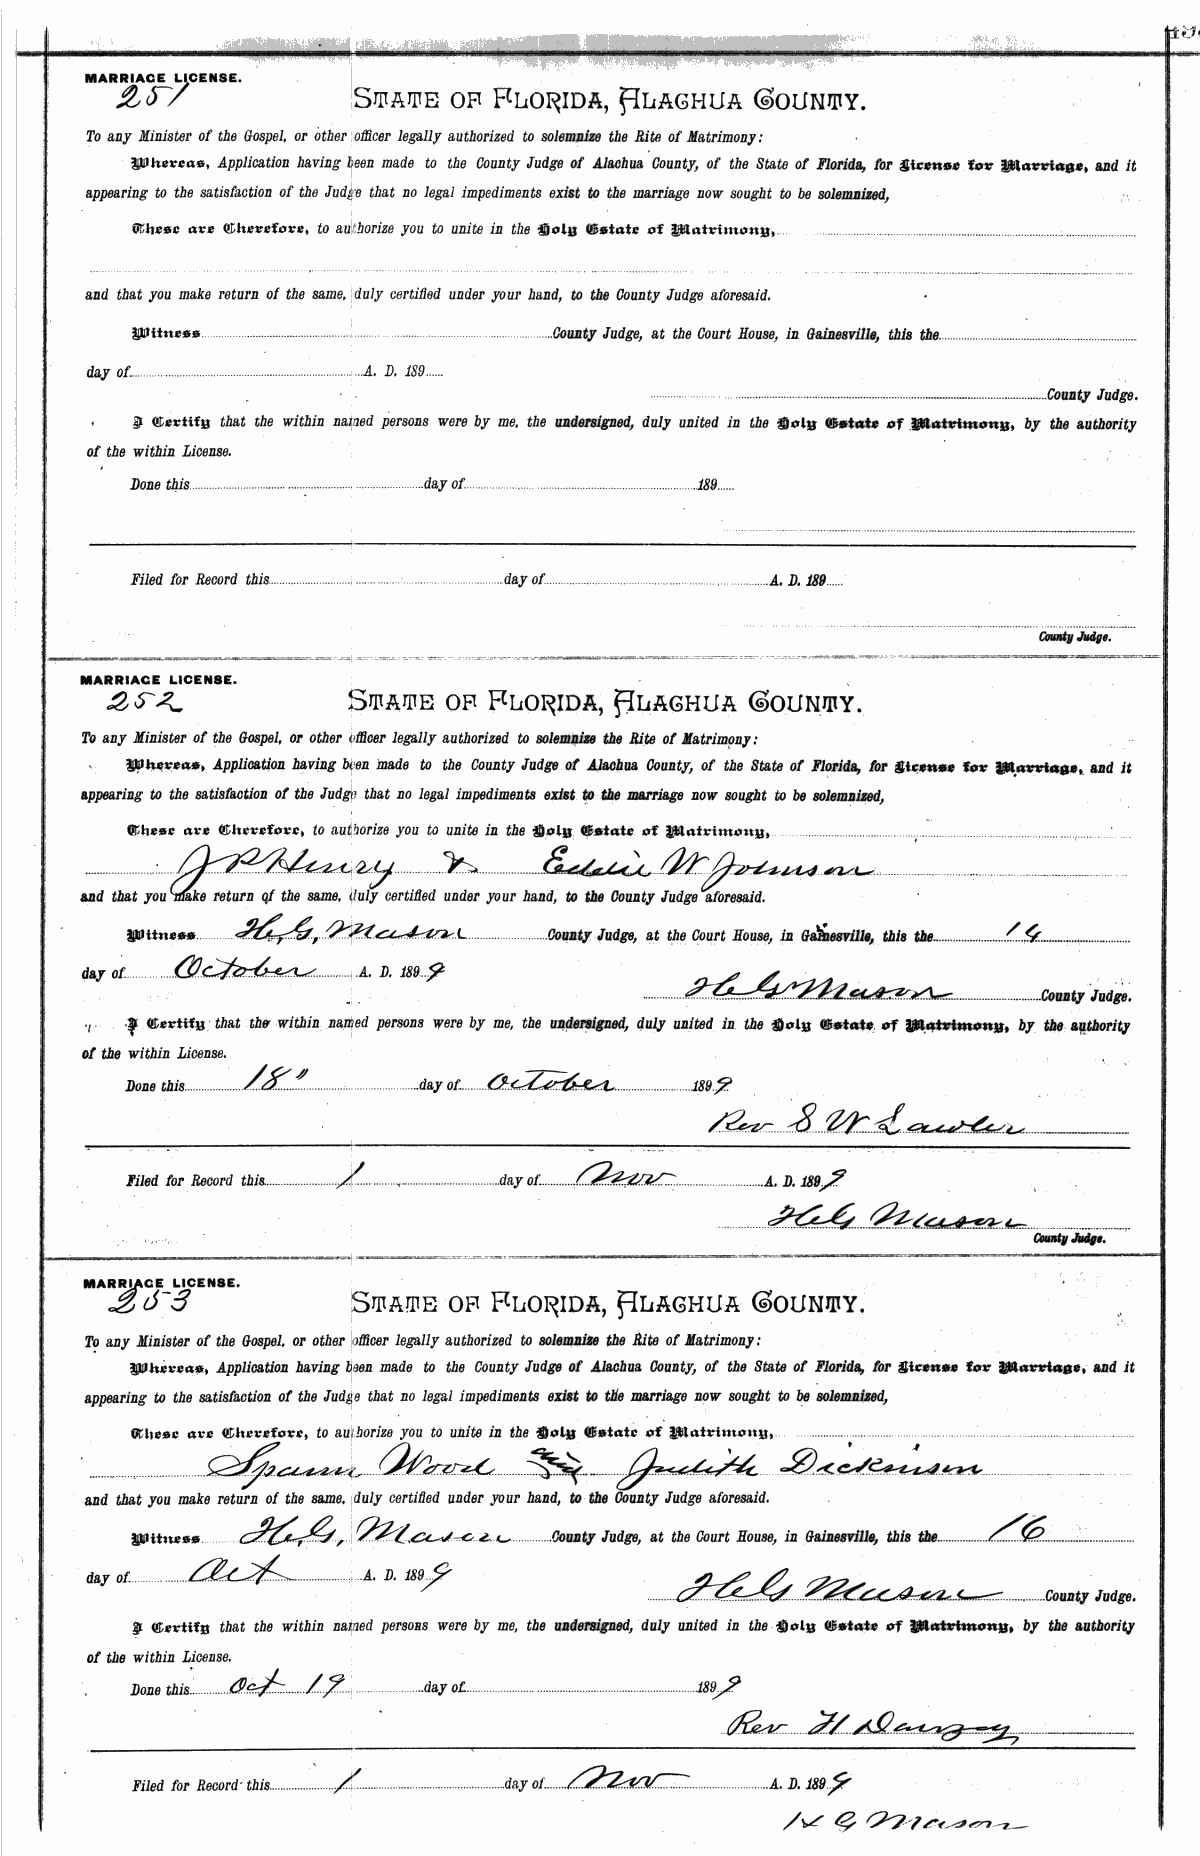 MARRIAGE LICENSE.
251
STATE OF FLORIDA, ALACHUA COUNTY.
To any Minister of the Gospel, or other officer legally authorized to solemnize the Rite of Matrimony:
Whereas, Application having been made to the County Judge of Alachua County, of the State of Florida, for License for Marriage, and it
appearing to the satisfaction of the Judge that no legal impediments exist to the marriage now sought to be solemnized,
These are Therefore, to authorize you to unite in the Holy Estate of Matrimony,
and that you make return of the same, duly certified under your hand, to the County Judge aforesaid.
Witness County Judge, at the Court House, in Gainesville, this the
day of A. D. 189
County Judge.
I Certify that the within named persons were by me, the undersigned, duly united in the Holy Estate of Matrimony, by the authority
of the within License.
Done this day of 189
Filed for Record this day of A. D. 189
County Judge.
MARRIAGE LICENSE.
252
STATE OF FLORIDA, ALACHUA COUNTY.
To any Minister of the Gospel, or other officer legally authorized to solemnize the Rite of Matrimony:
Whereas, Application having been made to the County Judge of Alachua County, of the State of Florida, for License for Marriage, and it
appearing to the satisfaction of the Judge that no legal impediments exist to the marriage now sought to be solemnized,
These are Therefore, to authorize you to unite in the Holy Estate of Matrimony,
J P Henry & Eddie W Johnson
and that you make return of the same, duly certified under your hand, to the County Judge aforesaid.
Witness H. G. Mason County Judge, at the Court House, in Gainesville, this the 14
day of October A. D. 1899
H G Mason County Judge.
I Certify that the within named persons were by me, the undersigned, duly united in the Holy Estate of Matrimony, by the authority
of the within License.
Done this 18" day of October 1899
Rev S W Lawler
Filed for Record this 1 day of Nov A. D. 1899
H G Mason
County Judge.
MARRIAGE LICENSE.
253
STATE OF FLORIDA, ALACHUA COUNTY.
To any Minister of the Gospel, or other officer legally authorized to solemnize the Rite of Matrimony:
Whereas, Application having been made to the County Judge of Alachua County, of the State of Florida, for License for Marriage, and it
appearing to the satisfaction of the Judge that no legal impediments exist to the marriage now sought to be solemnized,
These are Therefore, to authorize you to unite in the Holy Estate of Matrimony,
Spann Wood and Judith Dickinson
and that you make return of the same, duly certified under your hand, to the County Judge aforesaid.
Witness H. G. Mason County Judge, at the Court House, in Gainesville, this the 16
day of Oct A. D. 1899
H G Mason County Judge.
I Certify that the within named persons were by me, the undersigned, duly united in the Holy Estate of Matrimony, by the authority
of the within License.
Done this Oct 19 day of 1899
Rev H Danzey
Filed for Record this 1 day of Nov A. D. 1899
H G Mason